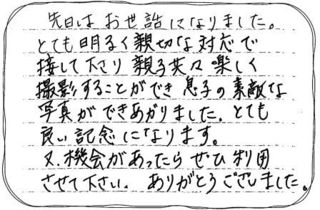 先日はお世話になりました。
とても明るく親切な対応で
接して下さり親子共々楽しく
撮影することができ息子の素敵な
写真ができあがりました。とても
良い記念になります。
又、機会があったらぜひ利用
させて下さい。ありがとうございました。